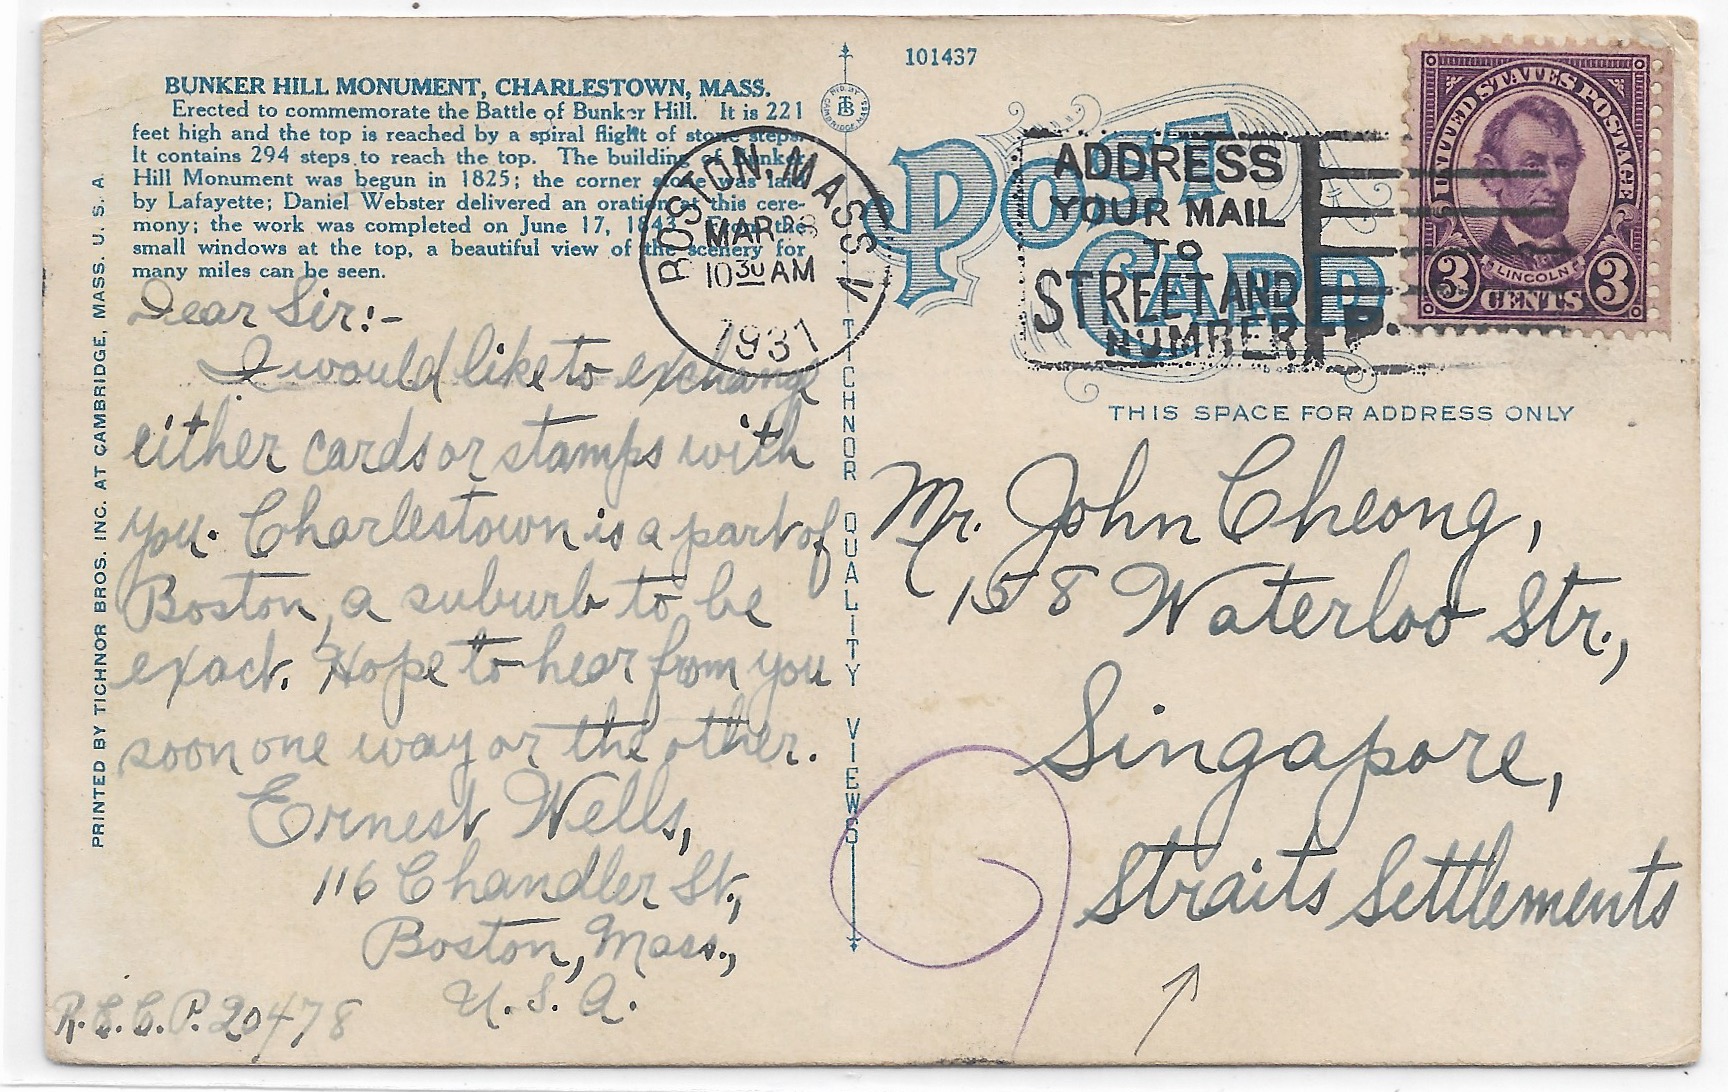 BUNKER HILL MONUMENT, CHARLESTOWN, MASS.
Erected to commemorate the Battle of Bunker Hill. It is 221
feet high and the top is reached by a spiral flight of stone steps.
It contains 294 steps to reach the top. The building of Bunker
Hill Monument was begun in 1825; the corner stone was laid
by Lafayette; Daniel Webster delivered an oration at this cere-
mony; the work was completed on June 17, 1843. From the
small windows at the top, a beautiful view of the scenery for
many miles can be seen.
Dear Sir:-
I would like to exchange
either cards or stamps with
you. Charlestown is a part of
Boston, a suburb to be
exact. Hope to hear from you
soon one way or the other.
Ernest Wells,
116 Chandler St.,
Boston, Mass.,
U. S. A.
R.E.C.P. 20478
PRINTED BY TICHNOR BROS. INC. AT CAMBRIDGE, MASS. U. S. A.
TICHNOR QUALITY VIEWS
101437
POST
CARD
BOSTON, MASS
MAR
10 30 AM
1931
ADDRESS
YOUR MAIL
TO
STREET AND
NUMBER
UNITED STATES POSTAGE
LINCOLN
3 CENTS 3
THIS SPACE FOR ADDRESS ONLY
Mr. John Cheong,
158 Waterloo Str.,
Singapore,
Straits Settlements